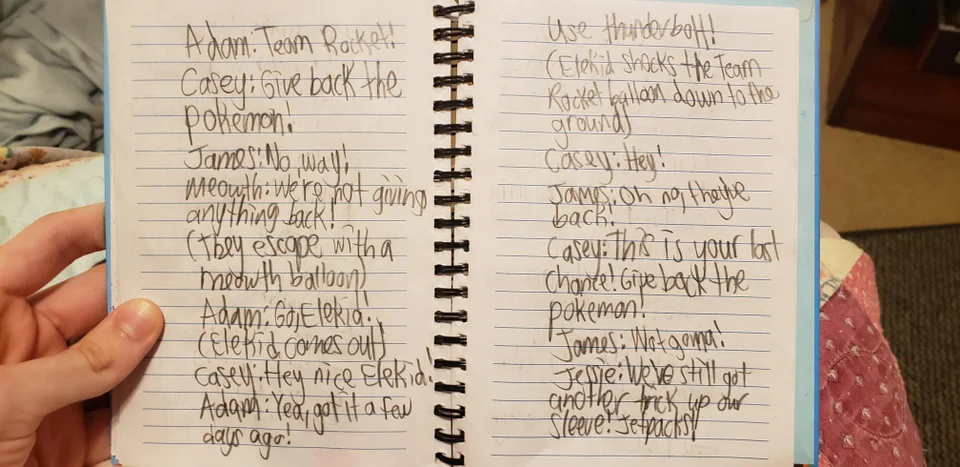 Adam: Team Rocket!
Casey: Give back the
pokemon!
James: No, way!
meowth: we're not giving
anything back!
(they escape with a
meowth balloon)
Adam: Go, Elekid!
(Elekid comes out)
casey: Hey nice Elekid!
Adam: Yea, got it a few
days ago!
Use thunderbolt!
(Elekid shocks the Team
Rocket balloon down to the
ground)
Casey: Hey!
James: Oh no, they're
back!
Casey: This is your last
chance! Give back the
pokemon!
James: Not gonna!
Jessie: We've still got
another trick up our
sleeve! Jetpacks!